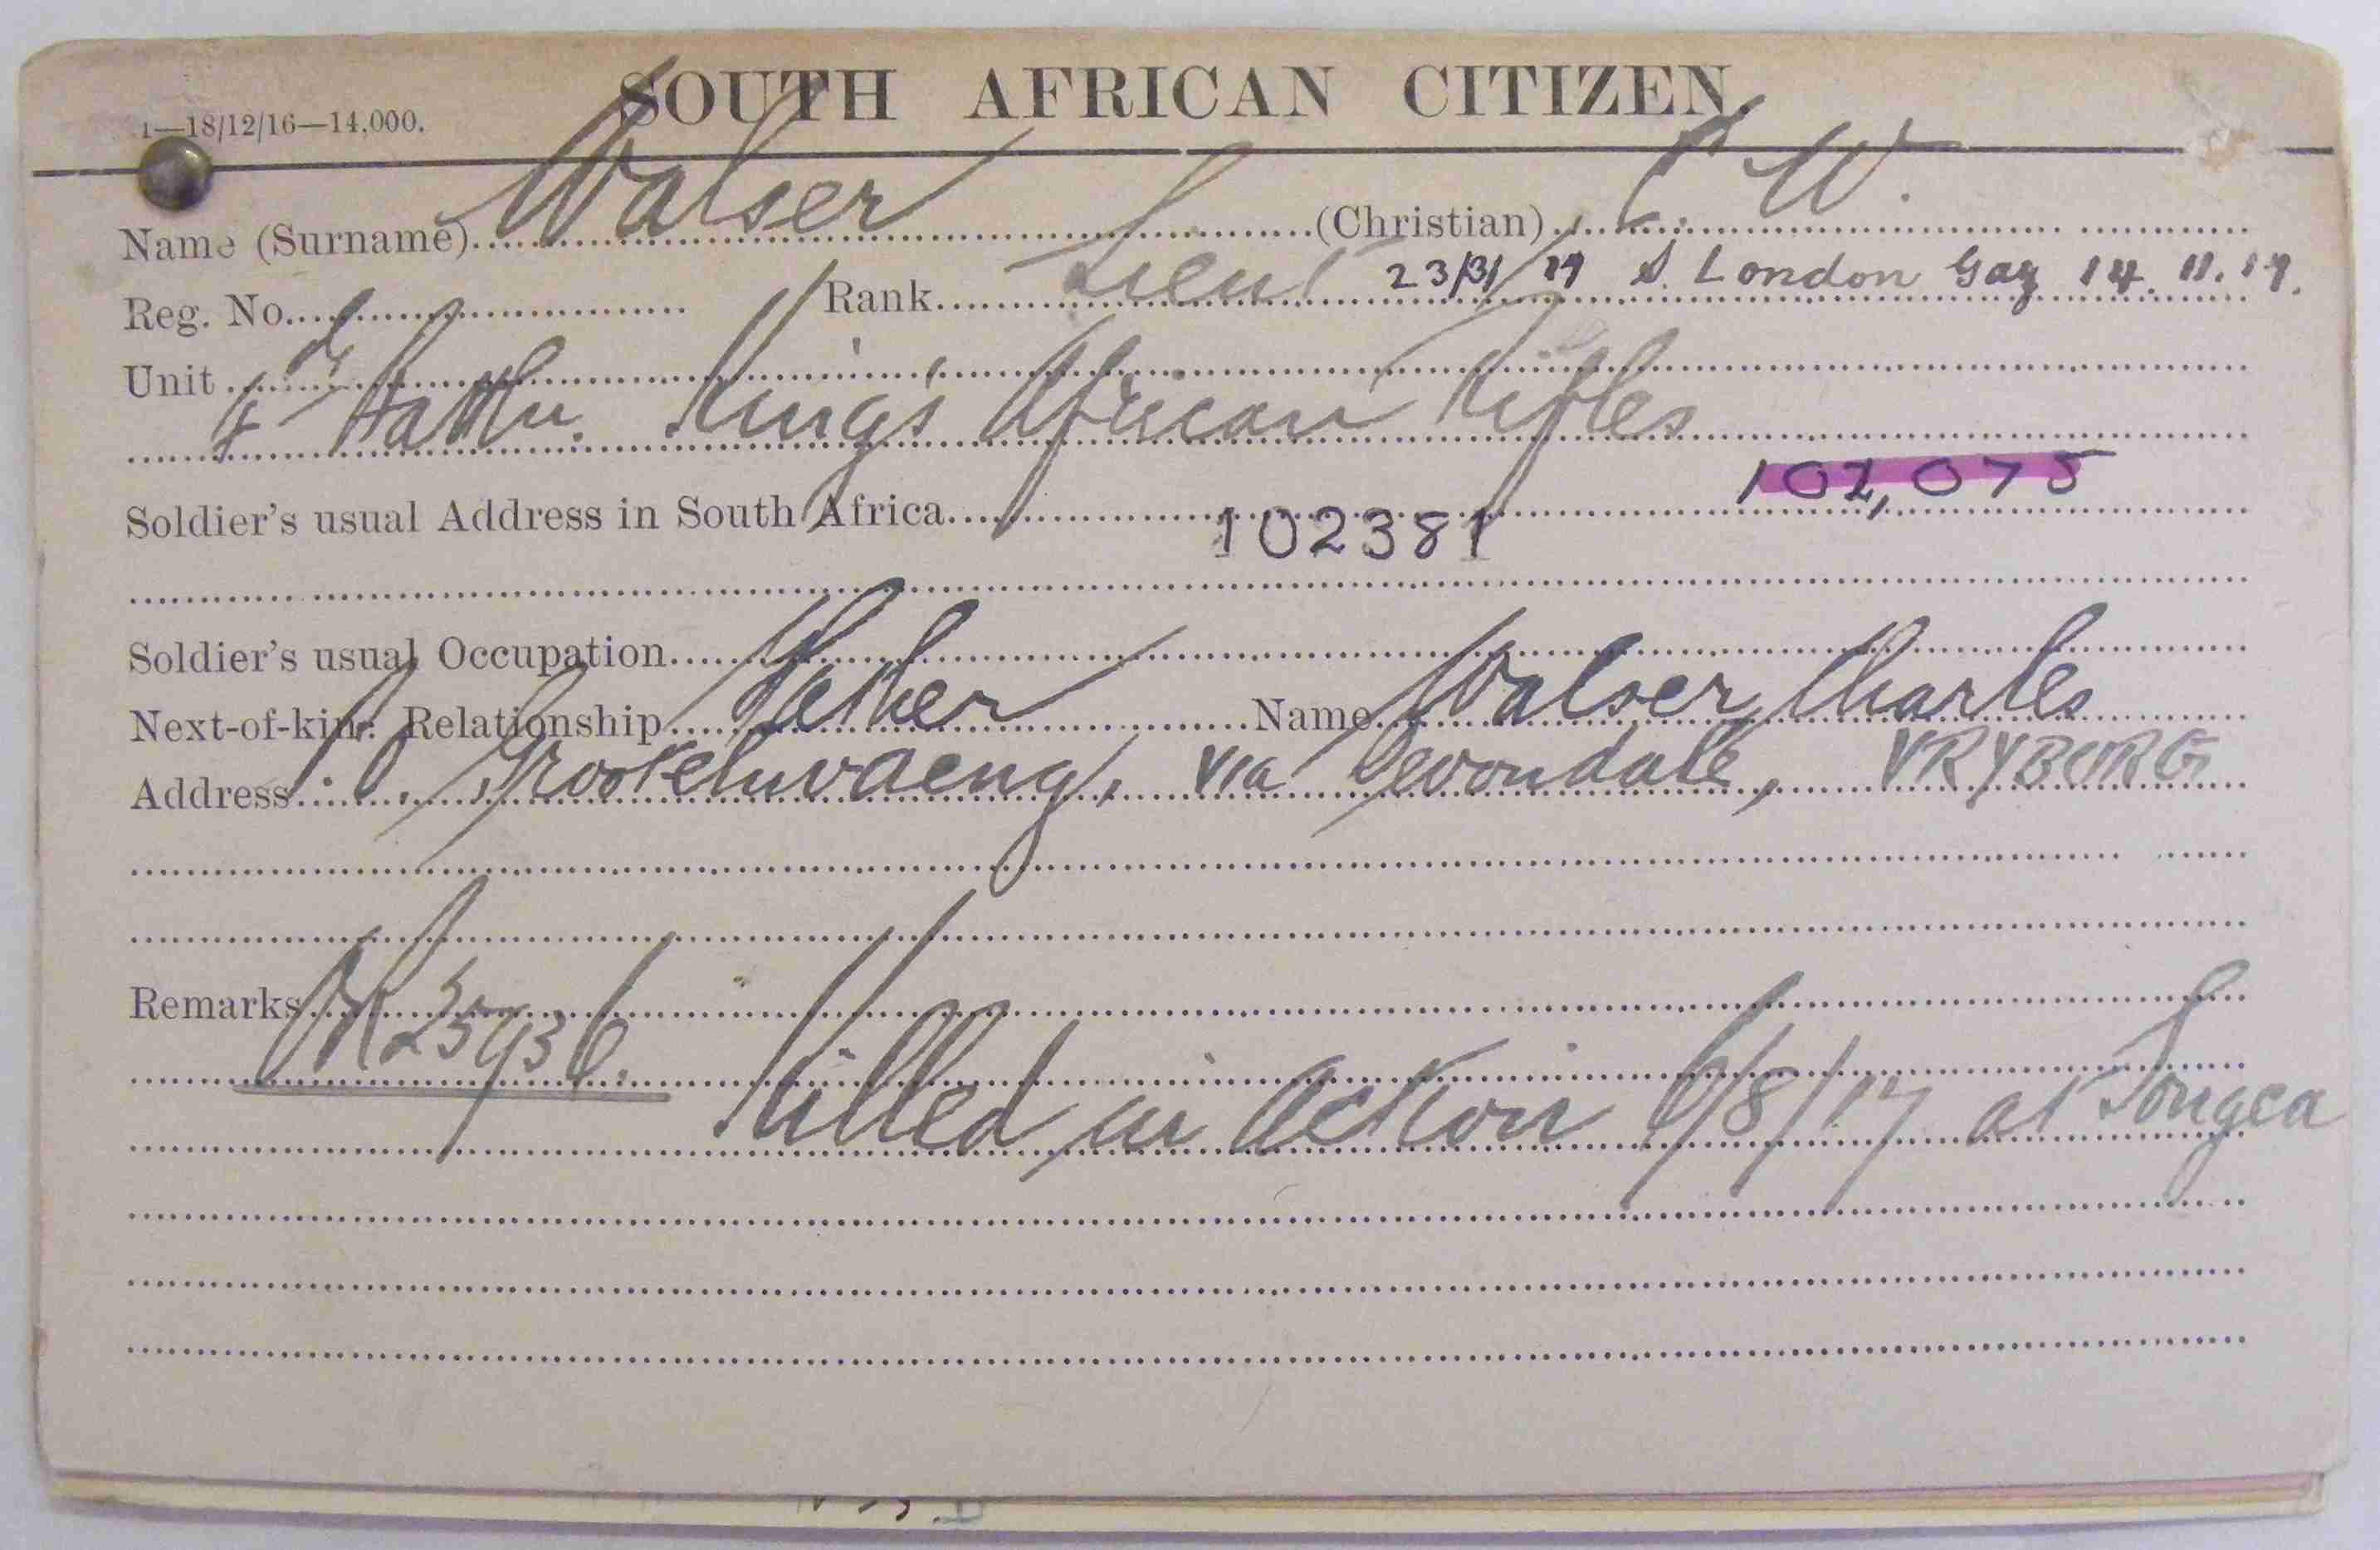 SOUTH AFRICAN CITIZEN.
1—18/12/16—14,000.
Name (Surname) Walser (Christian) C. W.
Reg. No. Rank Lieut 23/3/17 S. London Gaz 14.11.17.
Unit
Battln. King's African Rifles
102,075
Soldier's usual Address in South Africa
102381
Soldier's usual Occupation
Next-of-kin: Relationship Father Name Walser, Charles
Address via Devondale, VRYBURG
Remarks
25936.
Killed in Action 6/8/17 at Songea